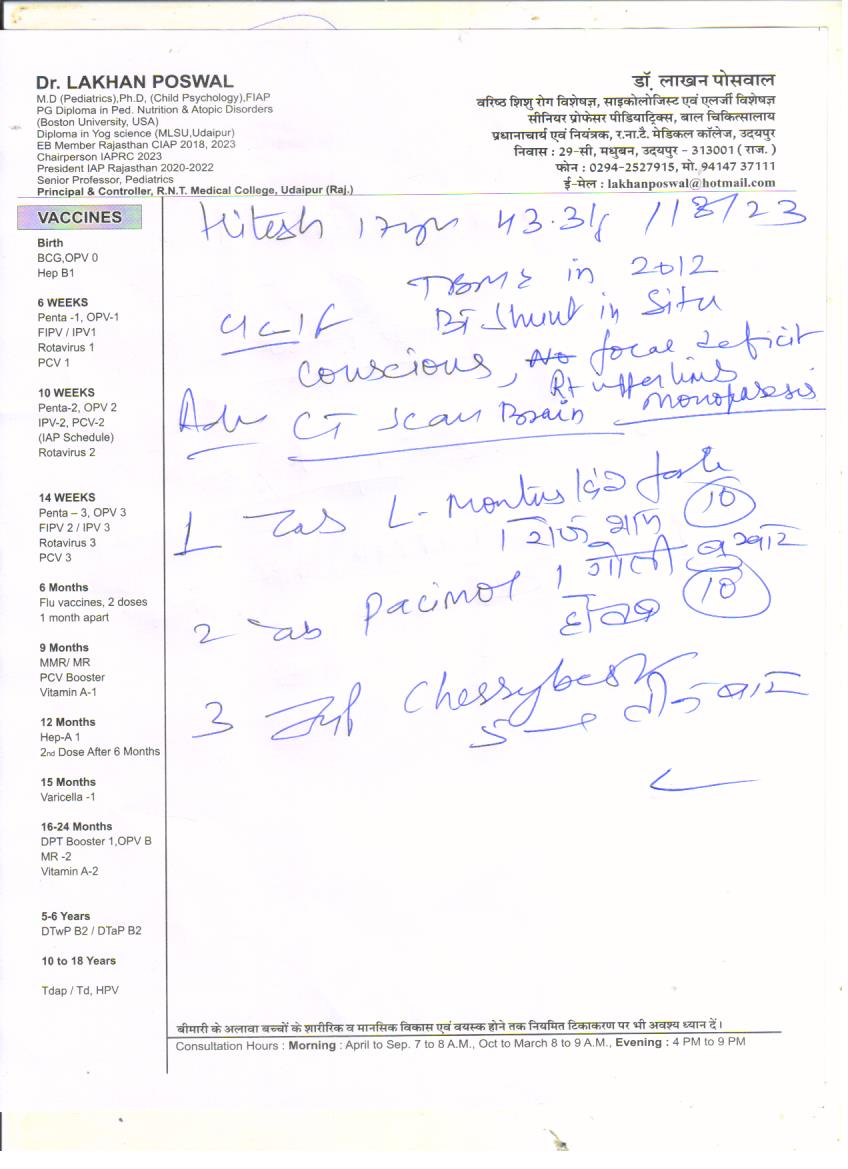 Dr. LAKHAN POSWAL
M.D (Pediatrics),Ph.D, (Child Psychology),FIAP
PG Diploma in Ped. Nutrition & Atopic Disorders
(Boston University, USA)
Diploma in Yog science (MLSU,Udaipur)
EB Member Rajasthan CIAP 2018, 2023
Chairperson IAPRC 2023
President IAP Rajasthan 2020-2022
Senior Professor, Pediatrics
Principal & Controller, R.N.T. Medical College, Udaipur (Raj.)
डॉ. लाखन पोसवाल
वरिष्ठ शिशु रोग विशेषज्ञ, साइकोलोजिस्ट एवं एलर्जी विशेषज्ञ
सीनियर प्रोफेसर पीडियाट्रिक्स, बाल चिकित्सालय
प्रधानाचार्य एवं नियंत्रक, र.ना.टै. मेडिकल कॉलेज, उदयपुर
निवास : 29-सी, मधुबन, उदयपुर - 313001 ( राज. )
फोन : 0294-2527915, मो. 94147 37111
ई-मेल : lakhanposwal@hotmail.com
VACCINES
Birth
BCG,OPV 0
Hep B1
6 WEEKS
Penta -1, OPV-1
FIPV / IPV1
Rotavirus 1
PCV 1
10 WEEKS
Penta-2, OPV 2
IPV-2, PCV-2
(IAP Schedule)
Rotavirus 2
14 WEEKS
Penta – 3, OPV 3
FIPV 2 / IPV 3
Rotavirus 3
PCV 3
6 Months
Flu vaccines, 2 doses
1 month apart
9 Months
MMR/ MR
PCV Booster
Vitamin A-1
12 Months
Hep-A 1
2nd Dose After 6 Months
15 Months
Varicella -1
16-24 Months
DPT Booster 1,OPV B
MR -2
Vitamin A-2
5-6 Years
DTwP B2 / DTaP B2
10 to 18 Years
Tdap / Td, HPV
Hitesh 43.3
in 2012
Shunt in Situ
conscious, No focal deficit
Rt upper limb
monoparesis
Adv CT Scan Brain
1 Tab L-Montus
10
2 Tab Pacimol 1 गोली बुखार
10
3
बीमारी के अलावा बच्चों के शारीरिक व मानसिक विकास एवं वयस्क होने तक नियमित टिकाकरण पर भी अवश्य ध्यान दें।
Consultation Hours : Morning : April to Sep. 7 to 8 A.M., Oct to March 8 to 9 A.M., Evening : 4 PM to 9 PM